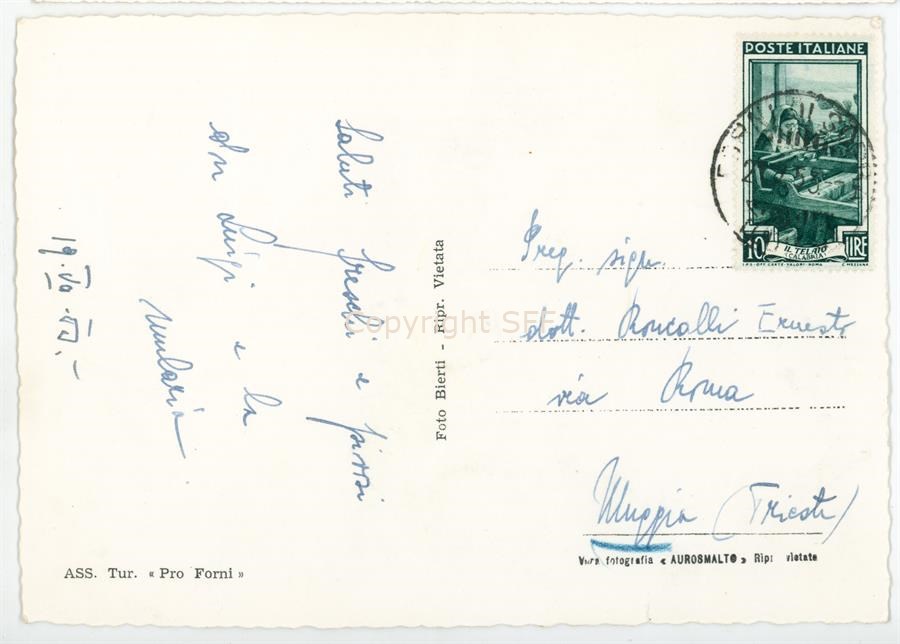 POSTE ITALIANE
10 LIRE
IL TELAIO
(CALABRIA)
I.P.S.-OFF. CARTE-VALORI-ROMA C. MEZZANA
Saluti freschi e
da Luigi e la
19.
Foto Bierti - Ripr. Vietata
Copyright SFF
Preg. sign.
dott. Roncalli Ernesto
via Roma
Muggia (Trieste)
Vera fotografia « AUROSMALTO » Ripr. vietata
ASS. Tur. « Pro Forni »